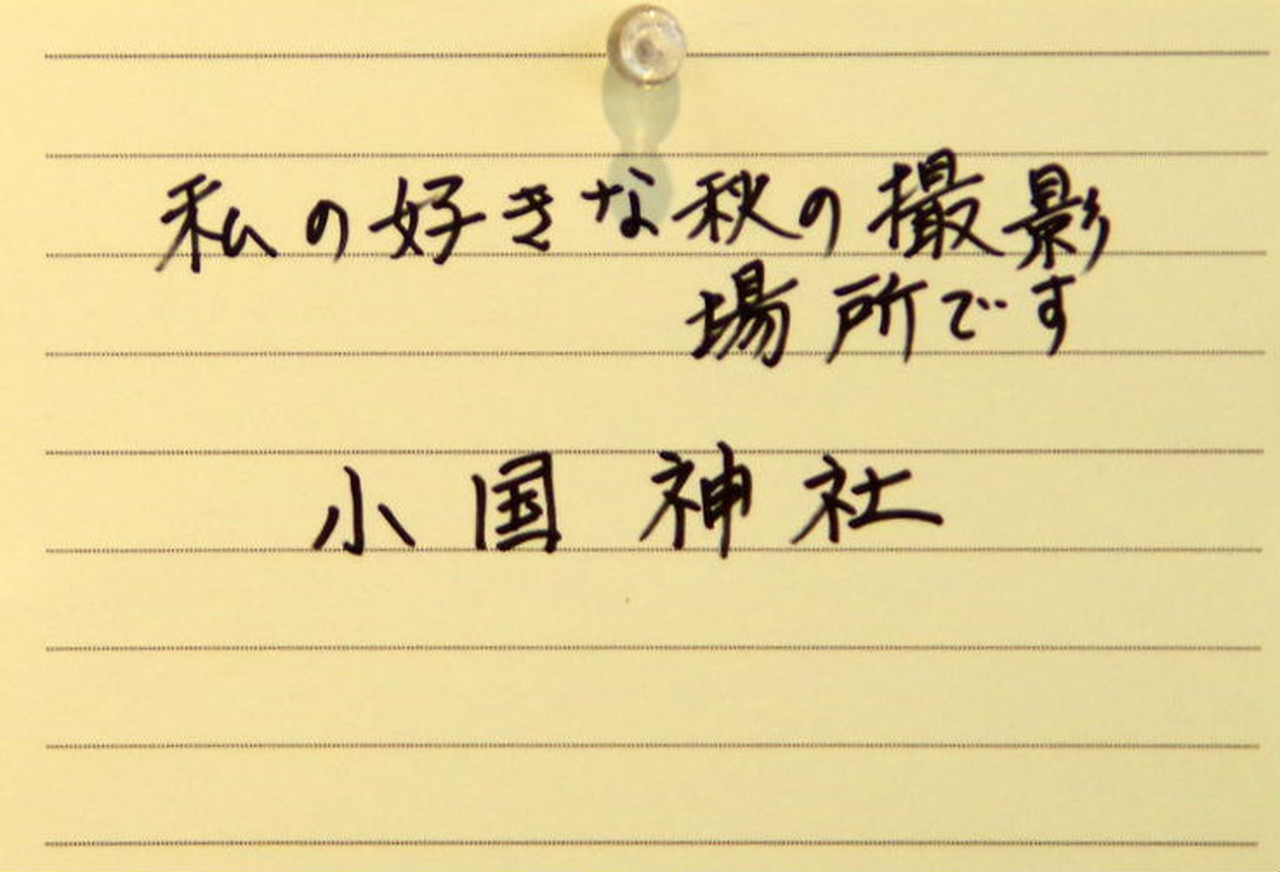 私の好きな秋の撮影
場所です
小国神社